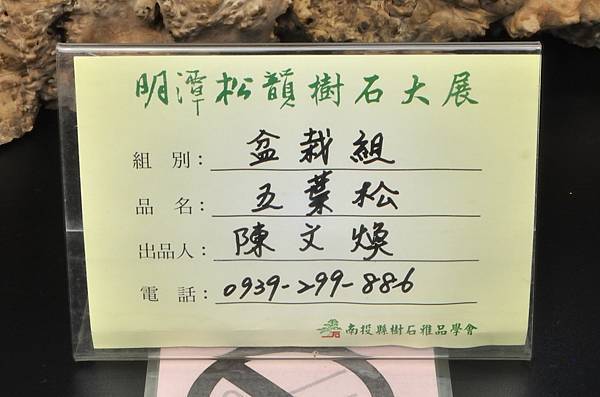 明潭松韻樹石大展
組 別：盆栽組
品 名：五葉松
出品人：陳文煥
電 話：0939-299-886
南投縣樹石雅品學會